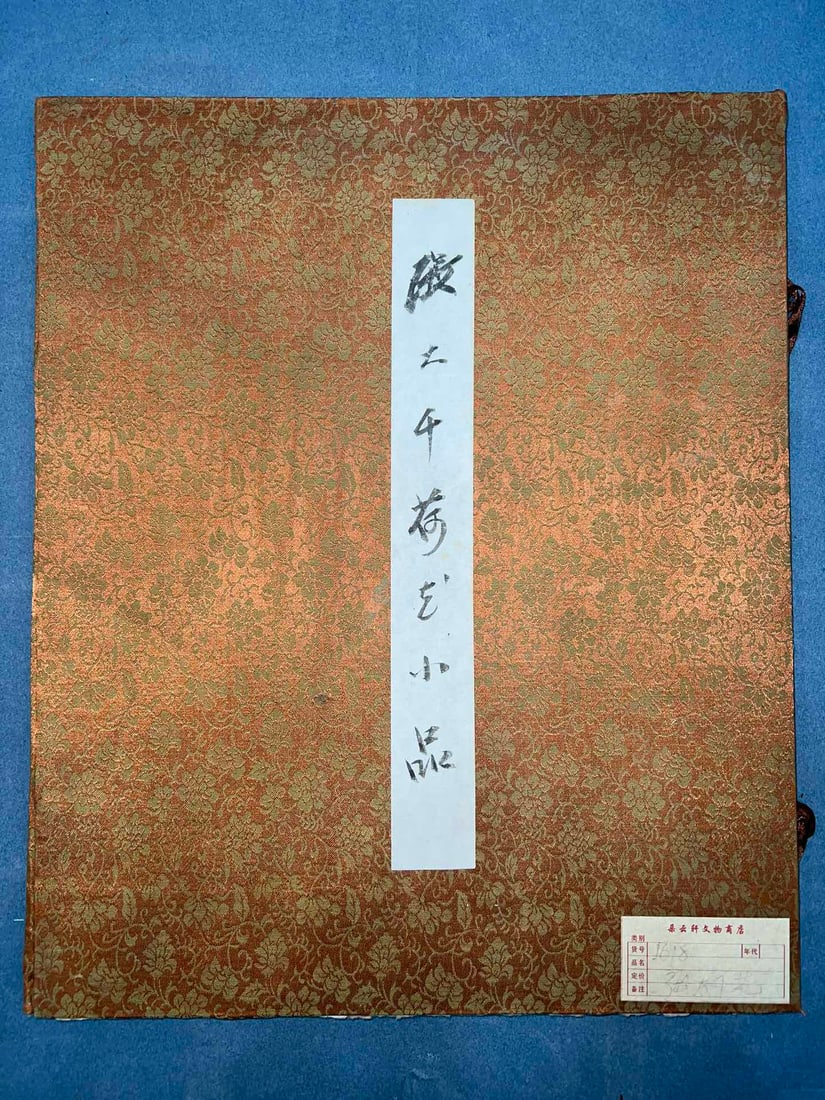 張大千荷花小品
朵云轩文物商店
类别
货号 年代
品名
定价
备注